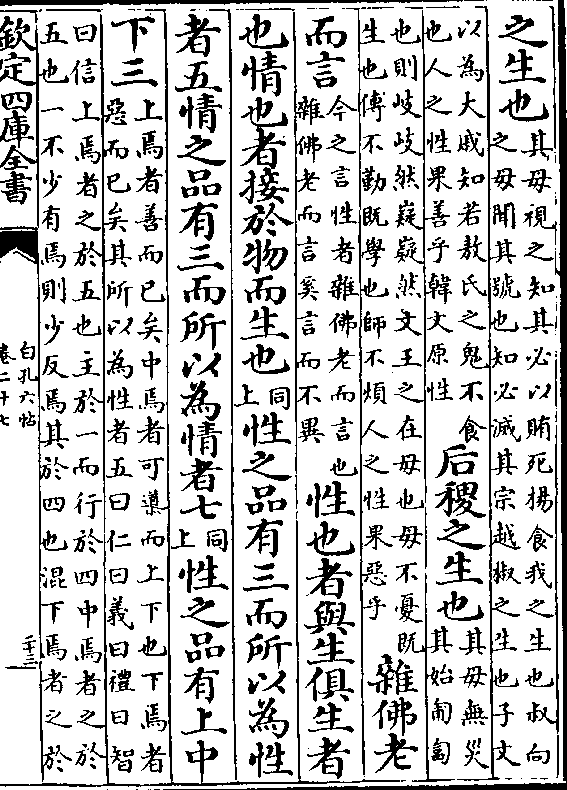 之生也
其母視之知其必以賄死揚食我之生也叔向
之母聞其號也知必滅其宗越椒之生也子文
以為大戚知若敖氏之鬼不食
也人之性果善乎韓文原性
后稷之生也
其母無災
其始匍匐
也則岐岐然嶷嶷然文王之在母也母不憂既
生也傅不勤既學也師不煩人之性果惡乎
雜佛老
而言
今之言性者雜佛老而言也
雜佛老而言奚言而不異
性也者與生俱生者
也情也者接於物而生也
同
上
性之品有三而所以為性
者五情之品有三而所以為情者七
同
上
性之品有上中
下三
上焉者善而已矣中焉者可導而上下也下焉者
惡而已矣其所以為性者五曰仁曰義曰禮曰智
曰信上焉者之於五也主於一而行於四中焉者之於
五也一不少有焉則少反焉其於四也混下焉者之於
欽定四庫全書
白孔六帖
卷二十七
二十三